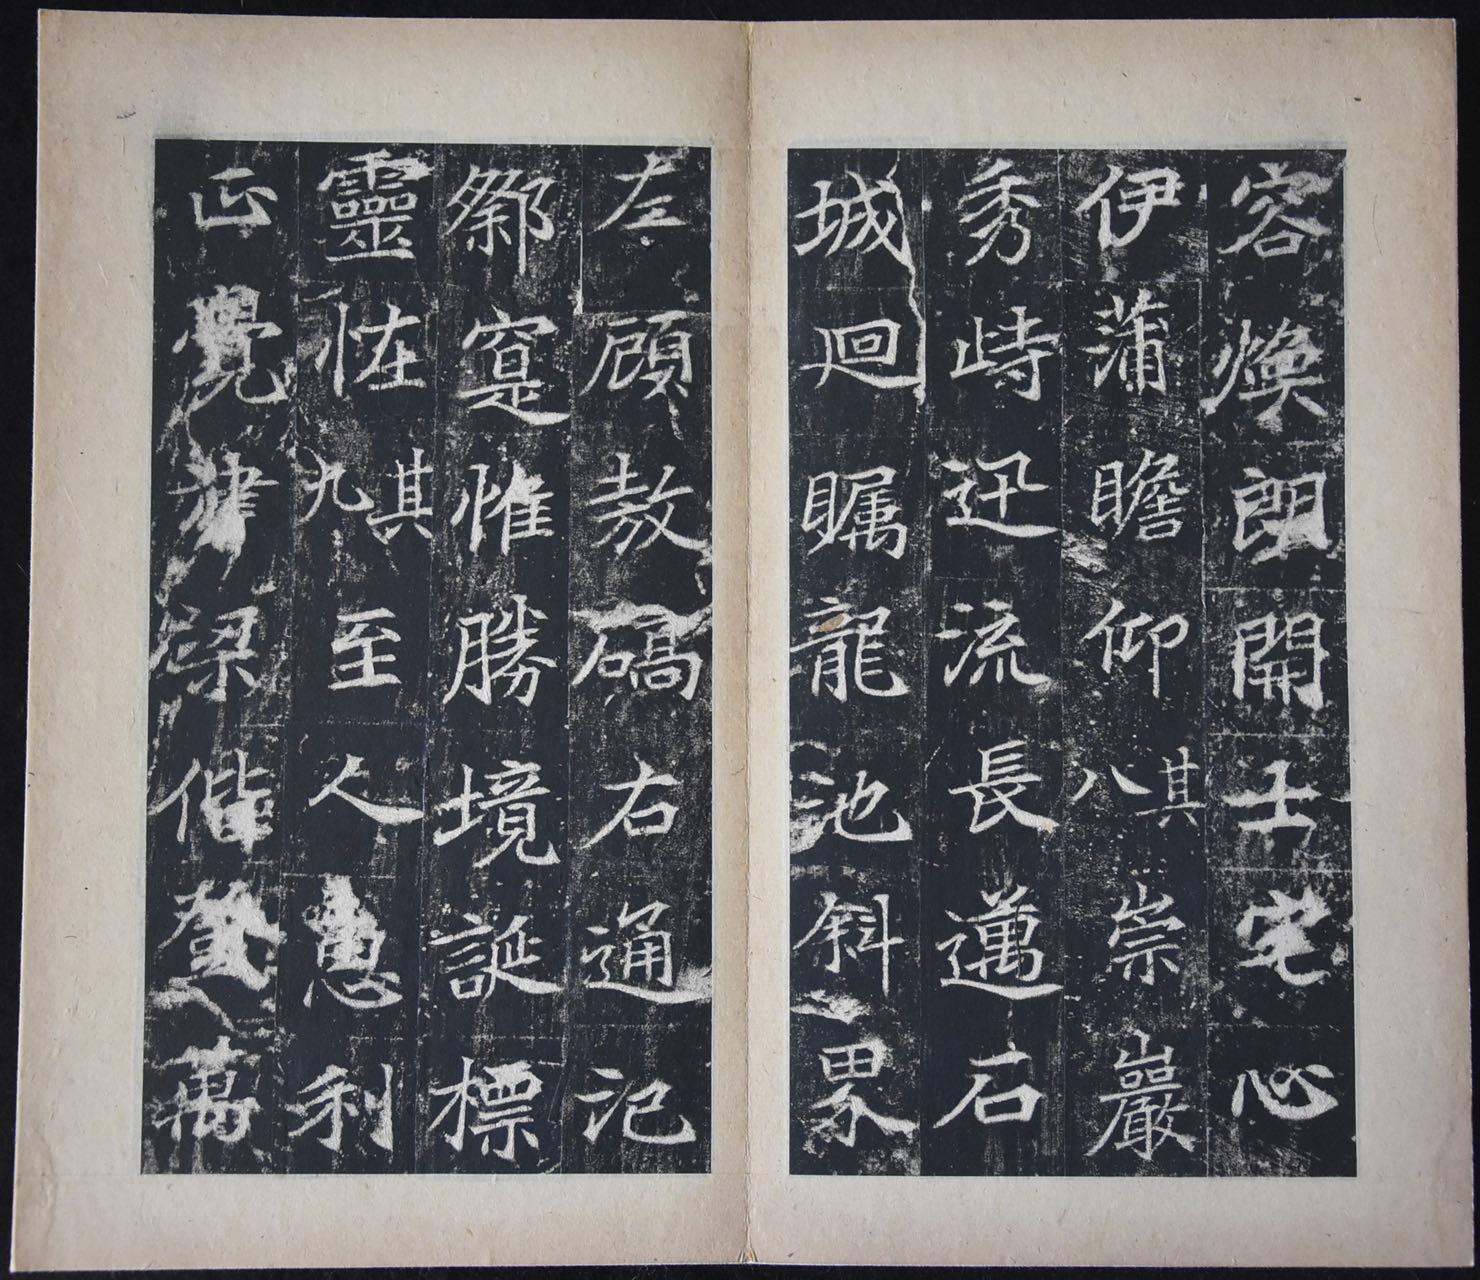 容煥朗開士宅心
伊蒲瞻仰其八崇巖
秀峙迅流長邁石
城迴矚龍池斜界
左顧敖碻右通汜
寔惟勝境誕標
靈怪其九至人惠利
正覺津梁偕萬